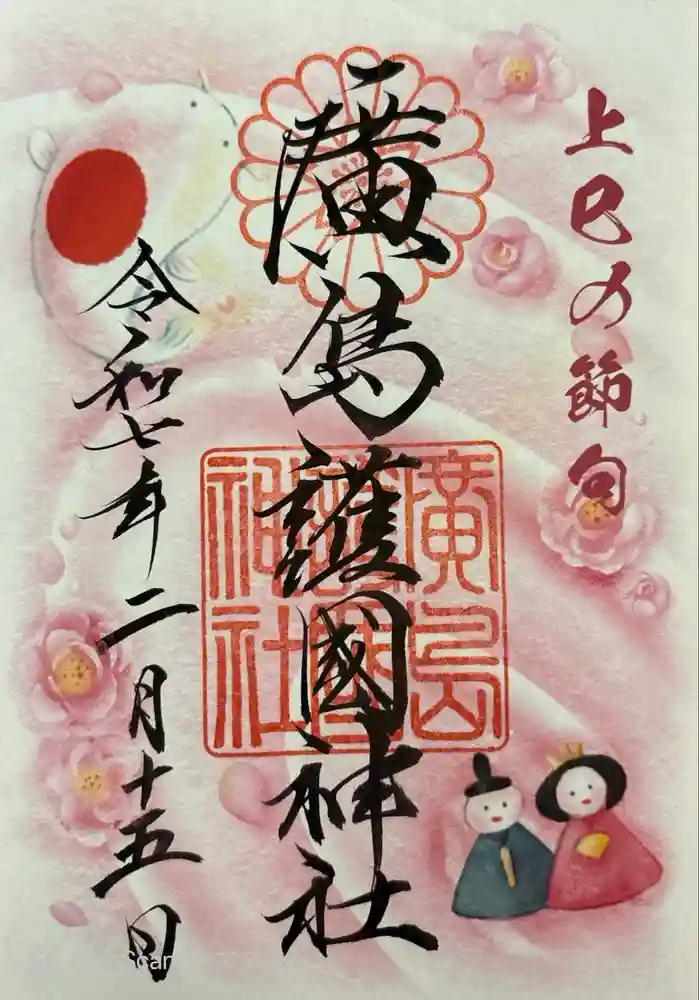 上巳の節句
廣島護國神社
廣島
護國
神社
令和七年二月十五日
Scan